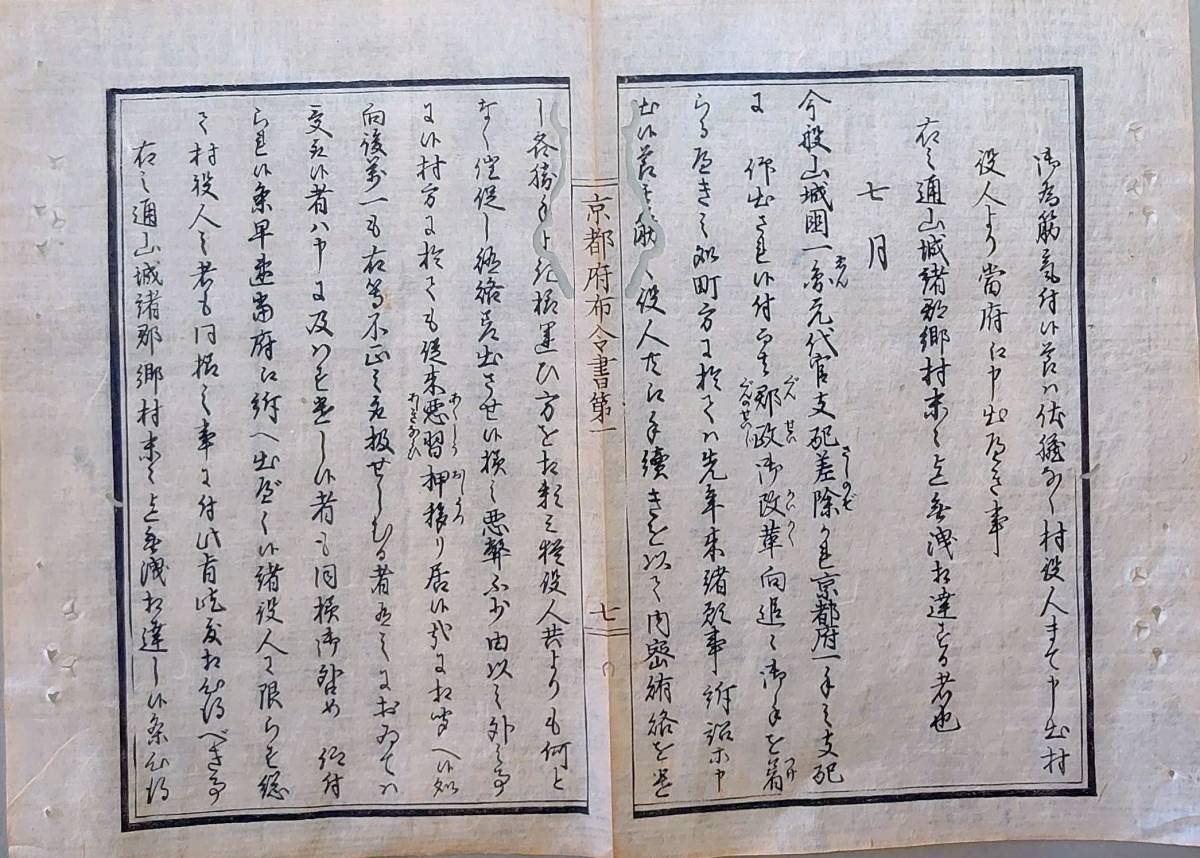 御為筋氣付候節ハ伏臓なく村役人まて申出村
役人より當府江申出へき事
右之通山城諸郡郷村末々迄無洩相達する者也
七月
今般山城国一円元代官支配差除かれ京都府一手之支配
に 仰出され候付而者郡政御改革向追々御手を着
らるへき之処町方に於てハ先年来諸願事訴詔ホ申
出候節者 役人共江手續きを以て内密賄賂を遣
し各勝手 方を相頼ミ猶役人共よりも何と
なく催促し賂差出させ候様之悪弊不少由以之外之事
に候村方に於ても従来悪習押移り居候哉に相聞へ候処
向後萬一も右等不正之取扱せしむる者有之におゐてハ
受取候者ハ申に及はす遣し候者も同様御咎め 仰付
られ候条早速當府江訴へ出べく候諸役人に限らす総
て村役人之者も同様之事に付此旨屹度相心得べき事
右之通山城諸郡郷村末々迄無洩相達し候条心得
京都府布令書第一
七